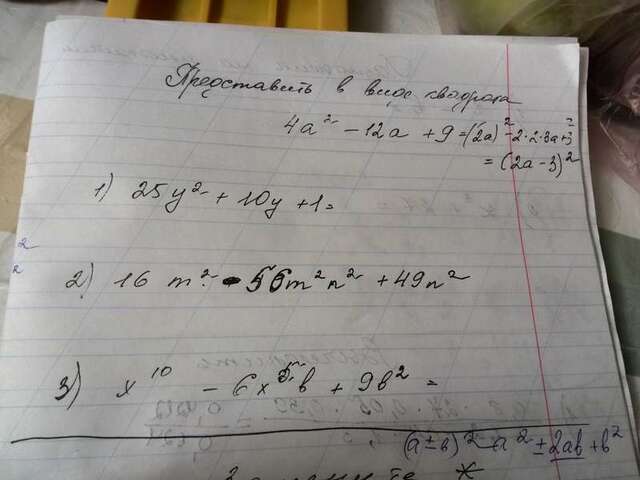 Представить в виде квадрата
4a² - 12a + 9 = (2a)² - 2·2·3a+3²
= (2a - 3)²
1) 25y² + 10y + 1 =
2) 16 m² - 56m²n² + 49n²
3) x¹⁰ - 6x⁵b + 9b² =
(a ± b)² = a² ± 2ab + b²